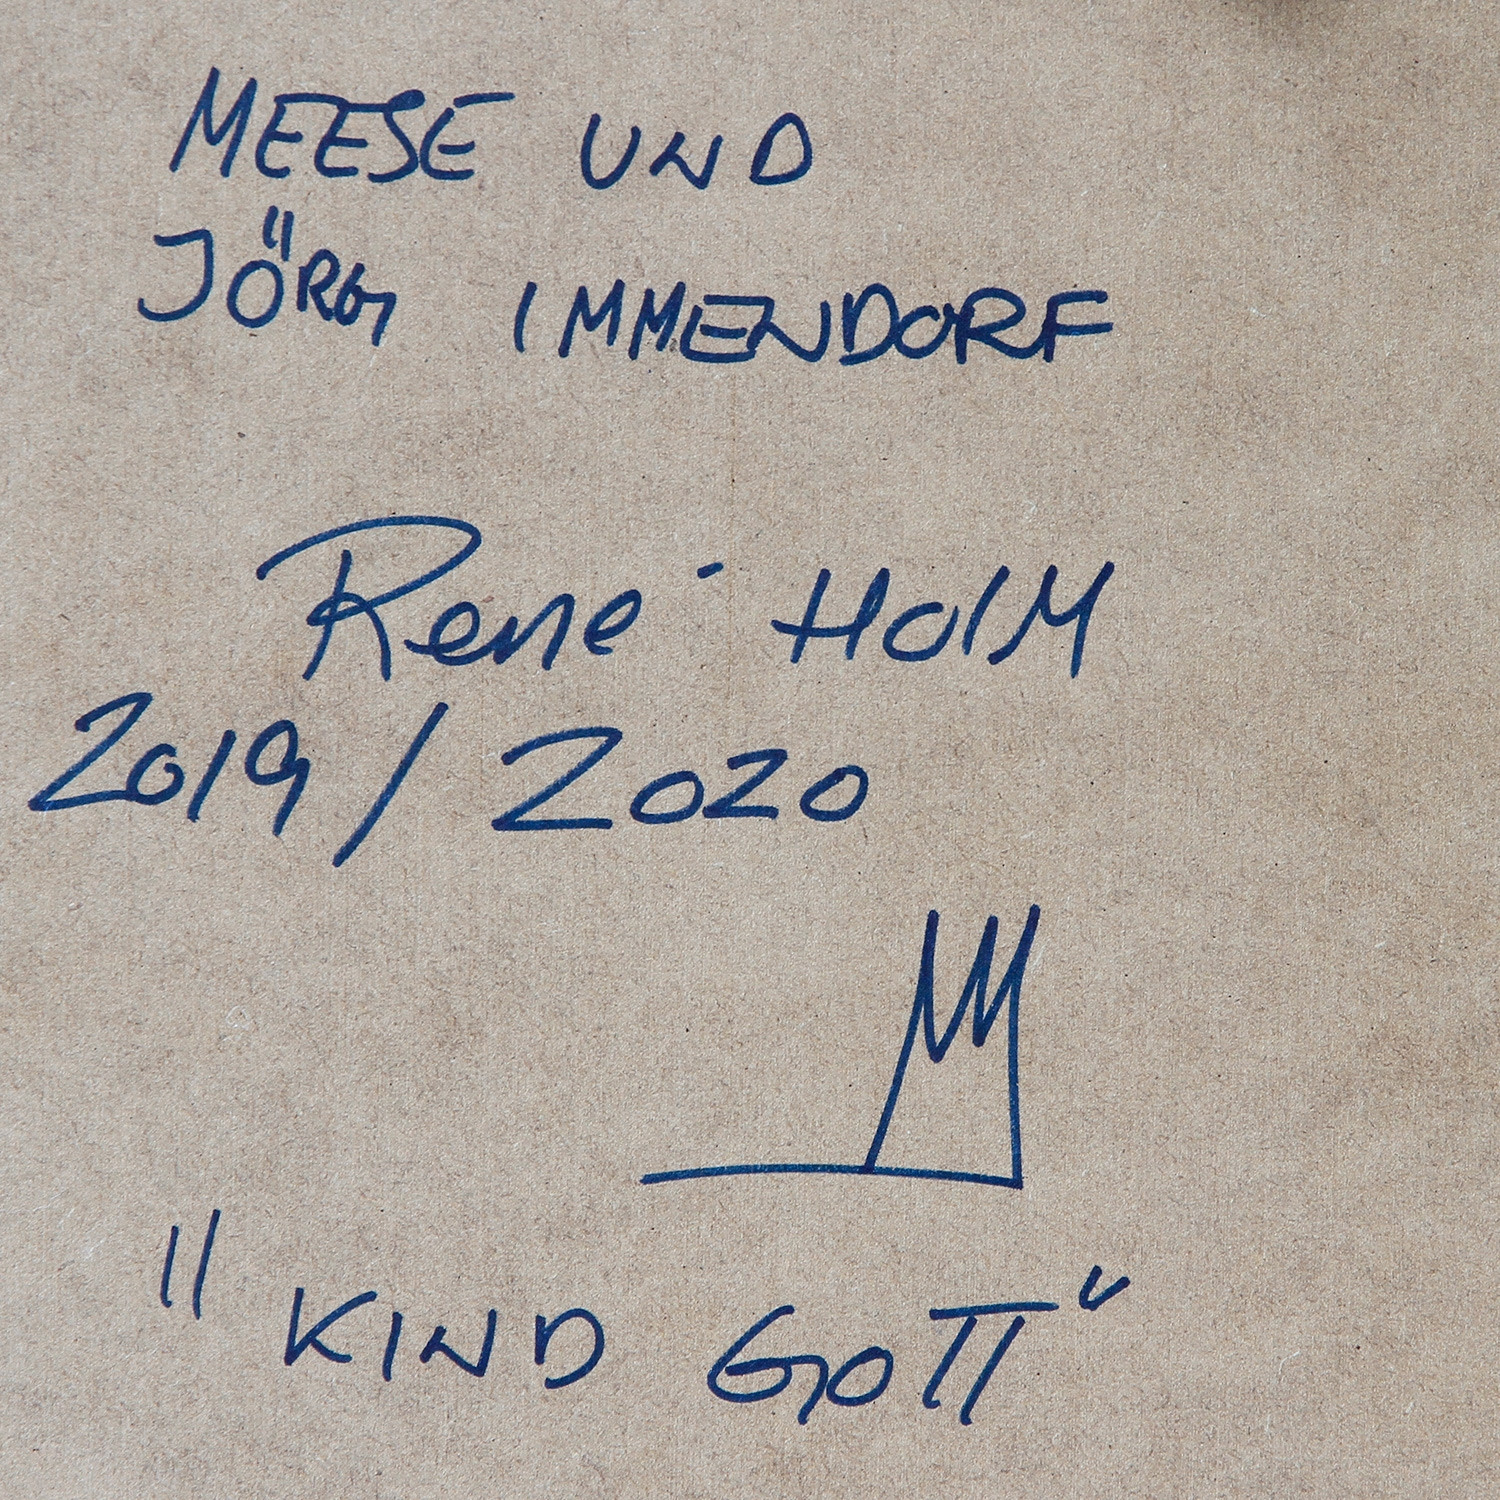 MEESE UND
JÖRG IMMENDORF
René HolM
2019/2020
"KIND GOTT"